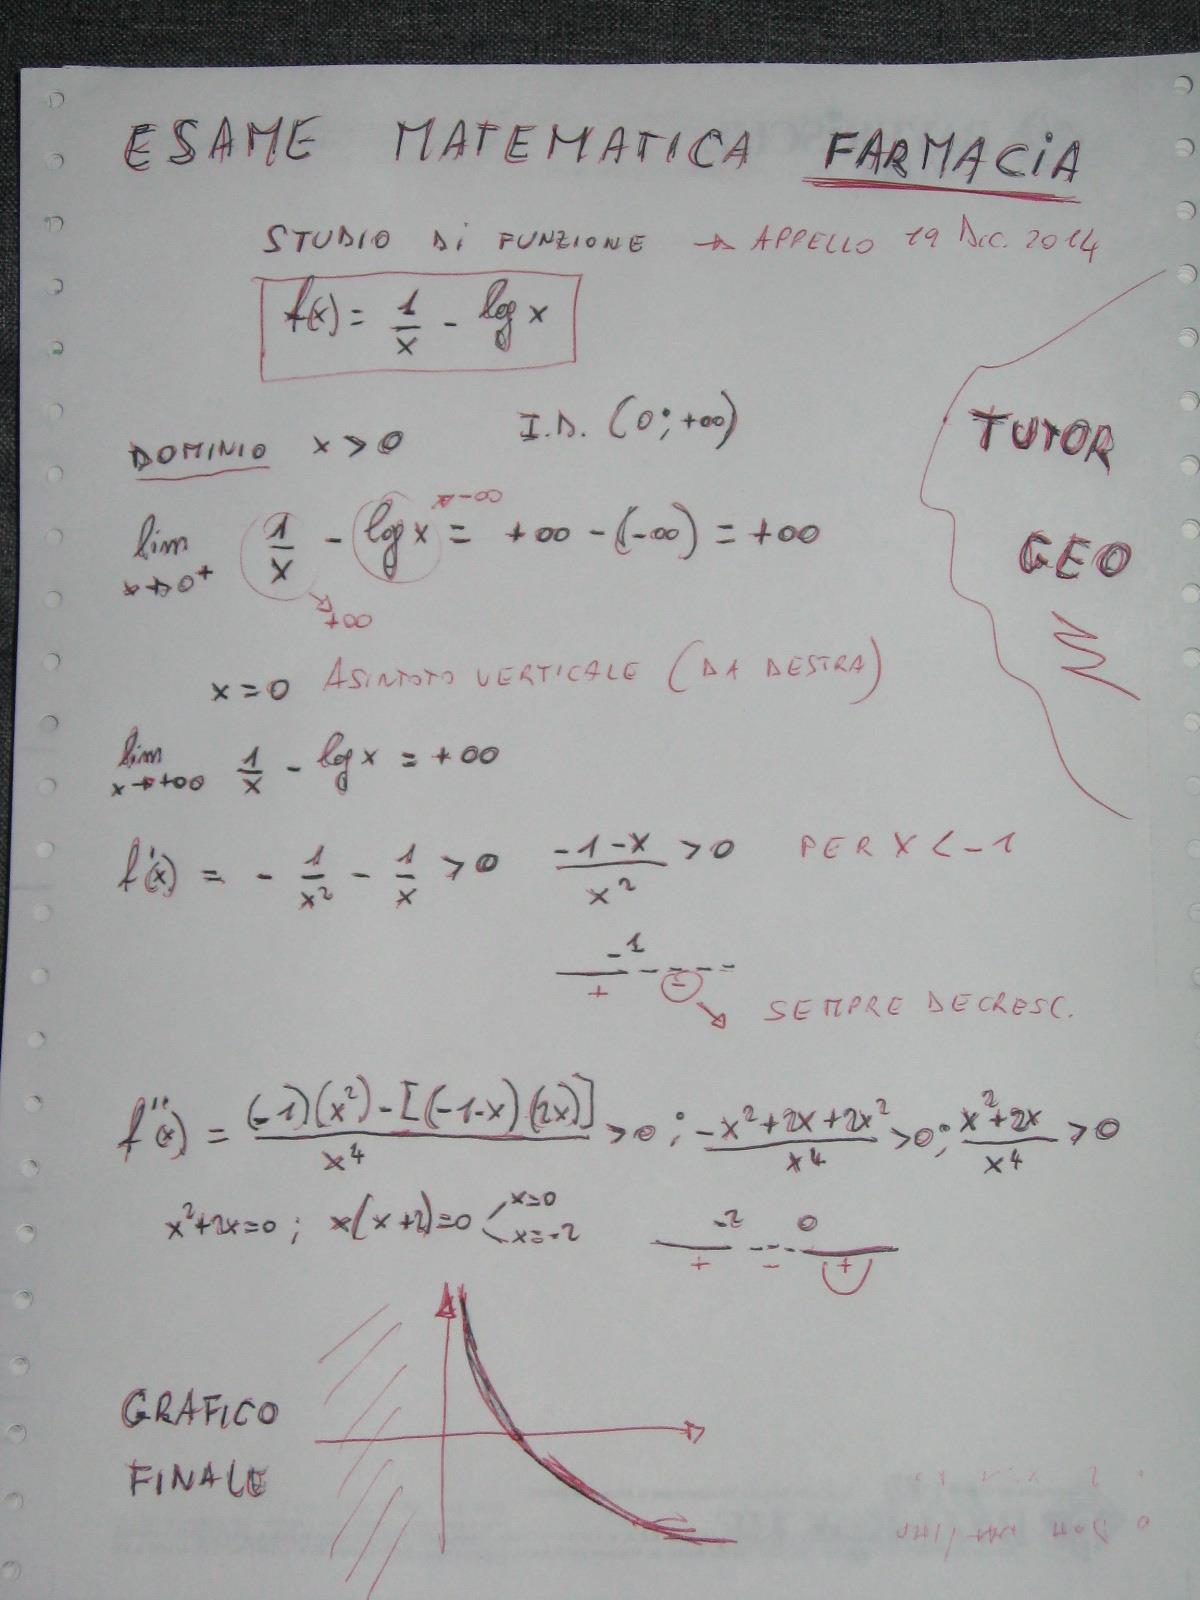 ESAME MATEMATICA FARMACIA
STUDIO DI FUNZIONE → APPELLO 19 DIC. 2014
f(x) = 1/x - log x
DOMINIO x > 0 I.D. (0; +∞)
lim x→0⁺ 1/x - log x = +∞ - (-∞) = +∞
→ -∞
→ +∞
x = 0 ASINTOTO VERTICALE (DA DESTRA)
lim x→+∞ 1/x - log x = +∞
f'(x) = - 1/x² - 1/x > 0 (-1-x)/x² > 0 PER X < -1
-1
+ - → SEMPRE DECRESC.
f''(x) = ((-1)(x²) - [(-1-x)(2x)])/x⁴ > 0 ; (-x²+2x+2x²)/x⁴ > 0 ; (x²+2x)/x⁴ > 0
x²+2x=0 ; x(x+2)=0 x=0 x=-2
-2 0
+ - +
GRAFICO
FINALE
TUTOR
GEO